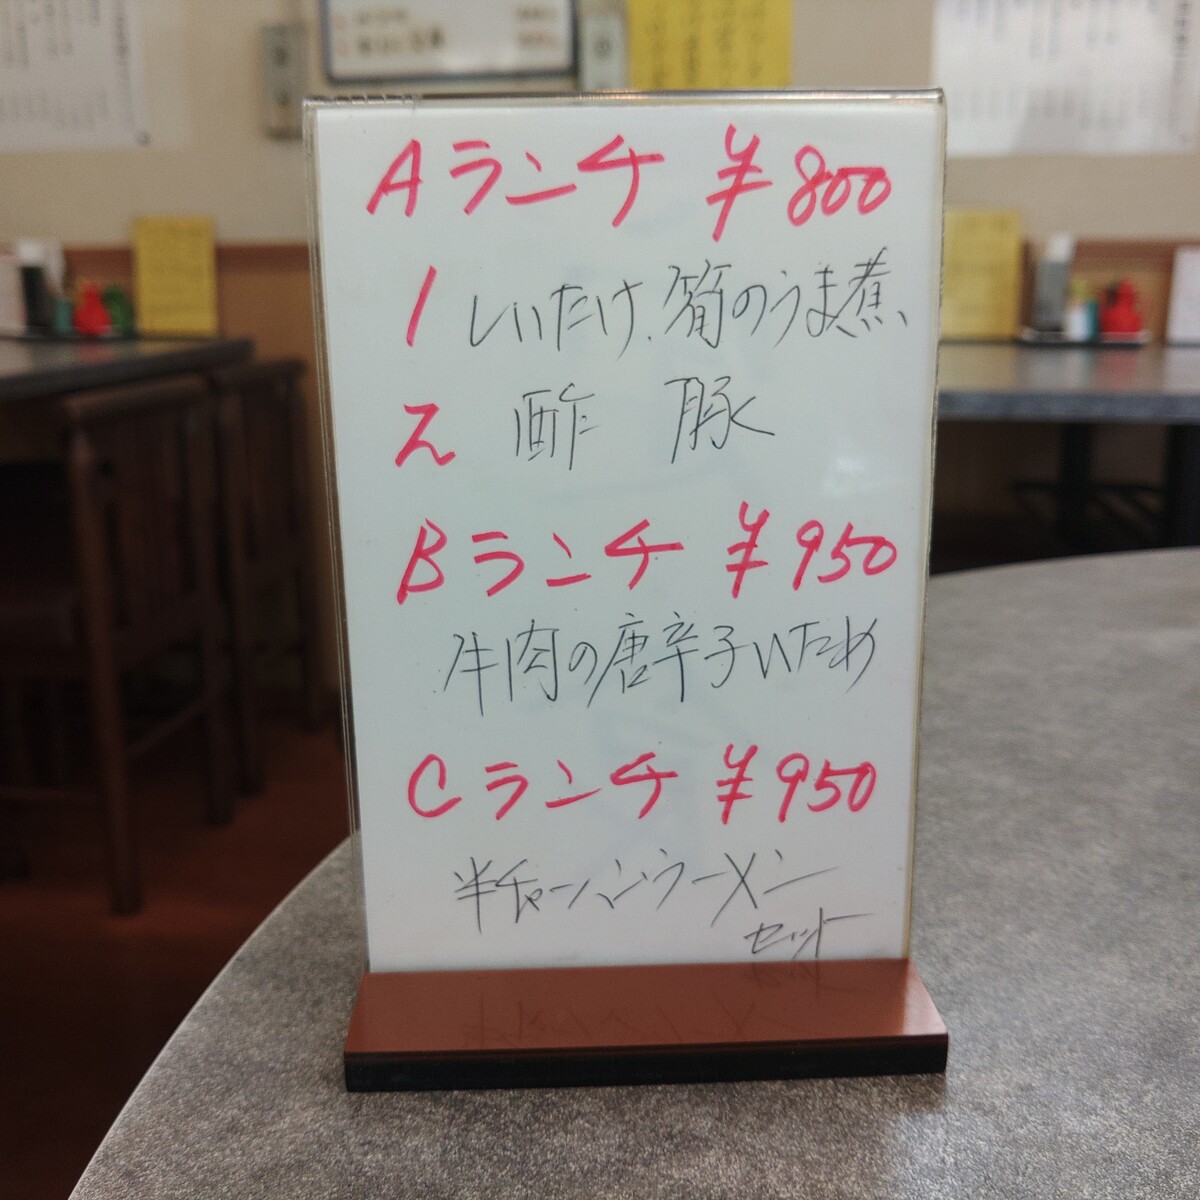 Aランチ ¥800
1 しいたけ、筍のうま煮、
2 酢豚
Bランチ ¥950
牛肉の唐辛子いため
Cランチ ¥950
半チャーハンラーメン
セット